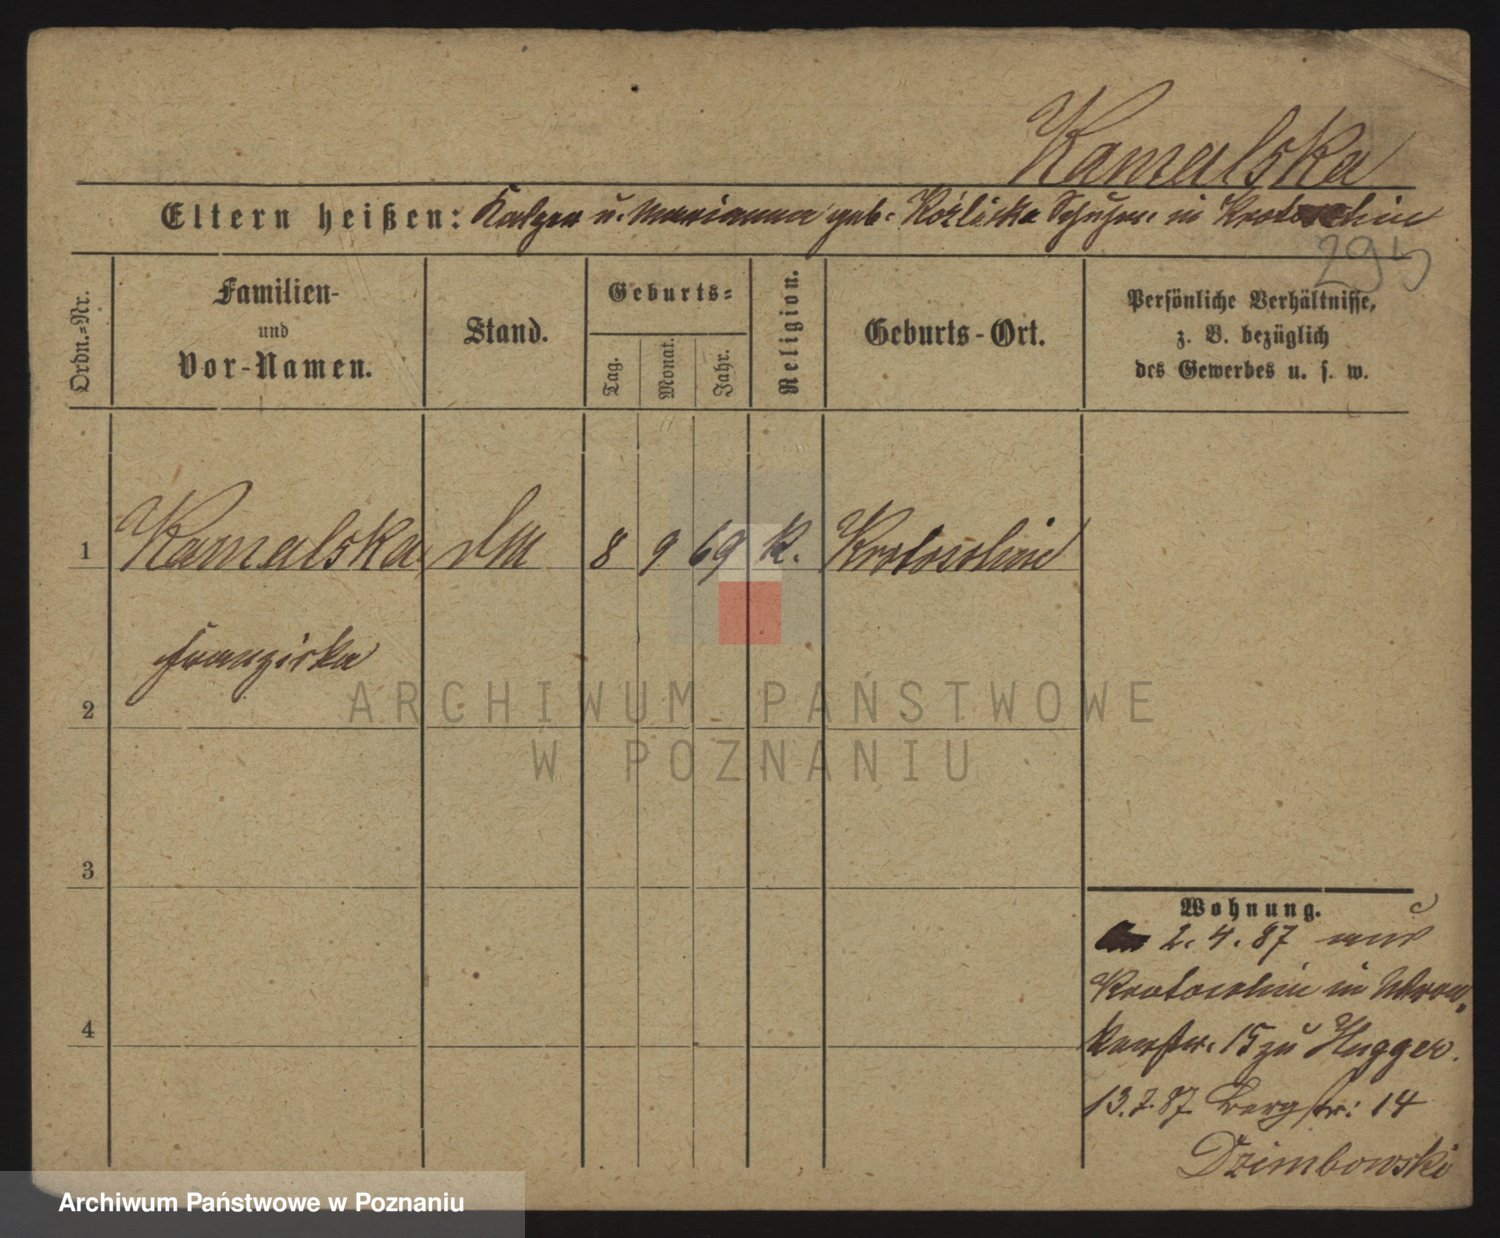 Kamalska
Eltern heißen: u. Marianna geb. Kozlicka in Krotoschin
295
Ordn.-Nr.
Familien-
und
Vor-Namen.
Stand.
Geburts-
Tag.
Monat.
Jahr.
Religion.
Geburts-Ort.
Persönliche Verhältnisse,
z. B. bezüglich
des Gewerbes u. s. w.
1 Kamalska 8 9 69 K. Krotoschin
Franziska
2
3
4
Wohnung.
2.4.87 aus
Krotoschin in Wron-
kerstr. 15 zu Hugger.
13.7.87 Bergstr: 14
Dzimbowski
ARCHIWUM PAŃSTWOWE
W POZNANIU
Archiwum Państwowe w Poznaniu